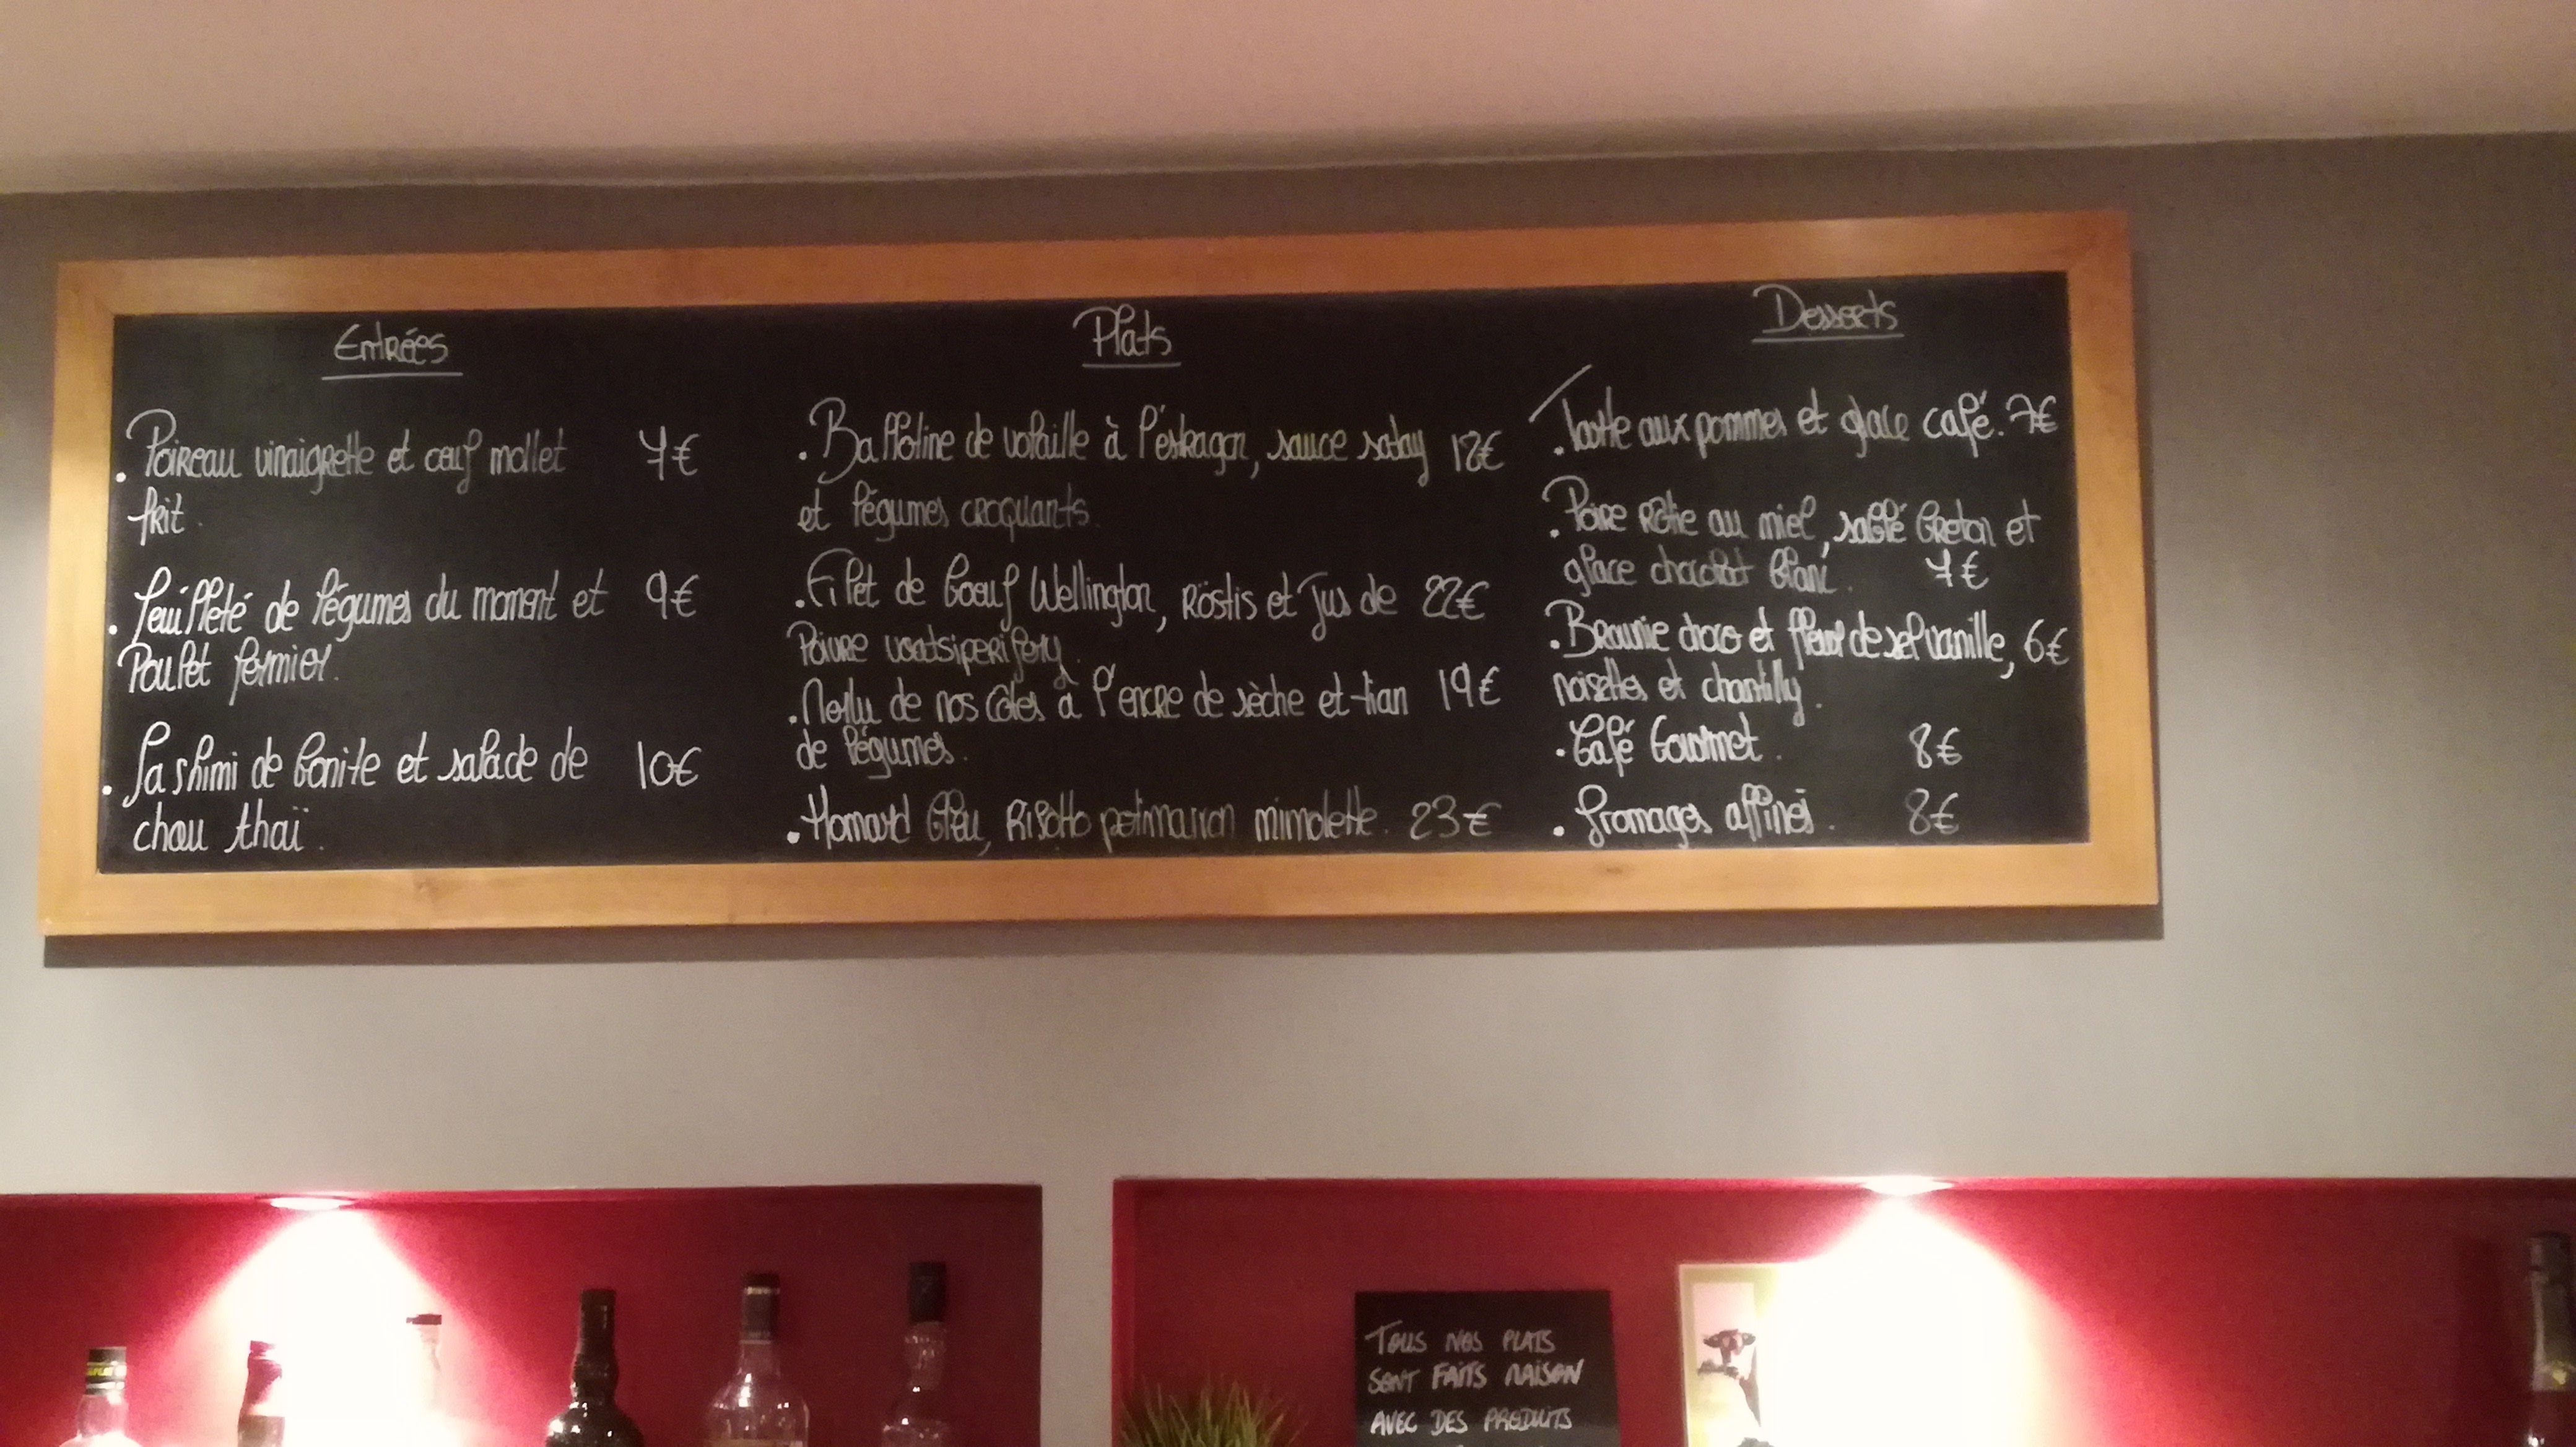 Entrées
. Poireau vinaigrette et œuf mollet 7€
frit.
. Feuilleté de légumes du moment et 9€
Poulet fermier.
. Sashimi de bonite et salade de 10€
chou thaï.
Plats
. Ballotine de volaille à l'estragon, sauce satay 18€
et légumes croquants.
. Filet de boeuf Wellington, Röstis et Jus de 22€
Poivre voatsiperifery
. Merlu de nos côtes à l'encre de sèche et tian 19€
de légumes.
. Homard bleu, Risotto potimarron mimolette. 23€
Desserts
. Tarte aux pommes et glace café. 7€
. Poire rôtie au miel, sablé breton et
glace chocolat blanc. 7€
. Brownie choco et fleur de sel vanille, 6€
noisettes et chantilly.
. Café Gourmet. 8€
. Fromages affinés. 8€
TOUS NOS PLATS
SONT FAITS MAISON
AVEC DES PRODUITS